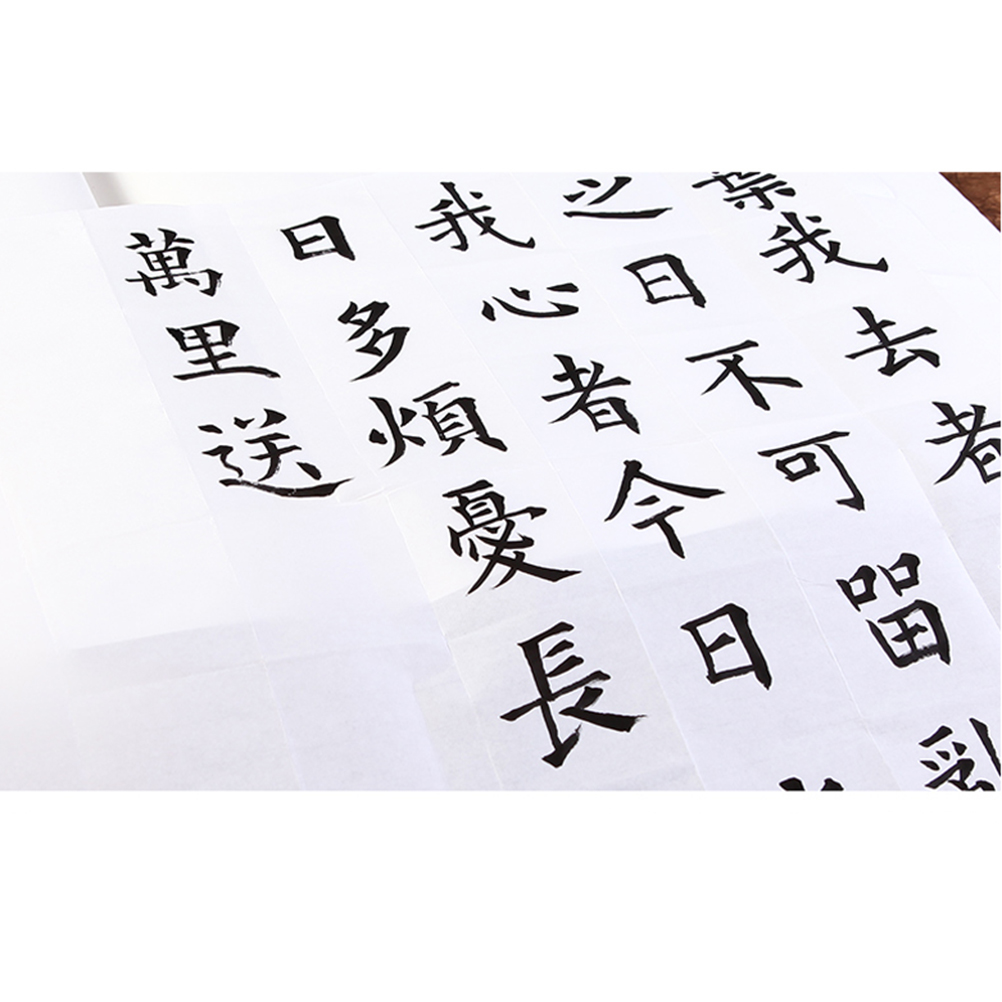 棄我去者
之日不可留
我心者今日
日多煩憂長
萬里送